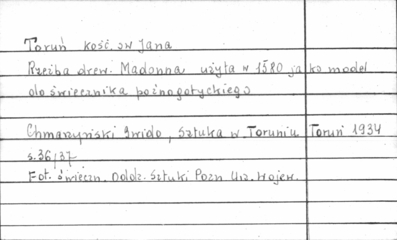 Toruń kość. św Jana
Rzeźba drew. Madonna użyta w 1580 jako model
do świecznika późnogotyckiego
Chmarzyński Gwido, Sztuka w Toruniu Toruń 1934
s. 36/37
Fot. świeczn. Oddz. Sztuki Pozn Urz. Wojew.